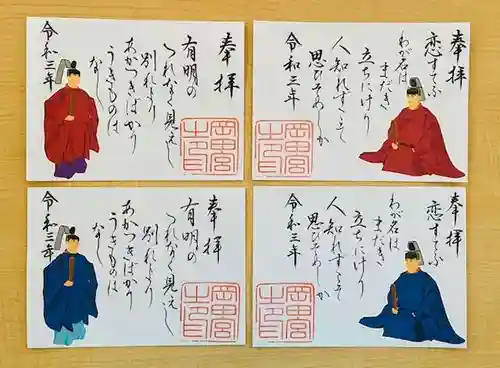 奉拝
有明の
つれなく見えし
別れより
あかつきばかり
うきものは
なし
令和三年
岡田宮
奉拝
恋すてふ
わが名は
まだき
立ちにけり
人知れずこそ
思ひそめしか
令和三年
岡田宮
奉拝
有明の
つれなく見えし
別れより
あかつきばかり
うきものは
なし
令和三年
岡田宮
奉拝
恋すてふ
わが名は
まだき
立ちにけり
人知れずこそ
思ひそめしか
令和三年
岡田宮